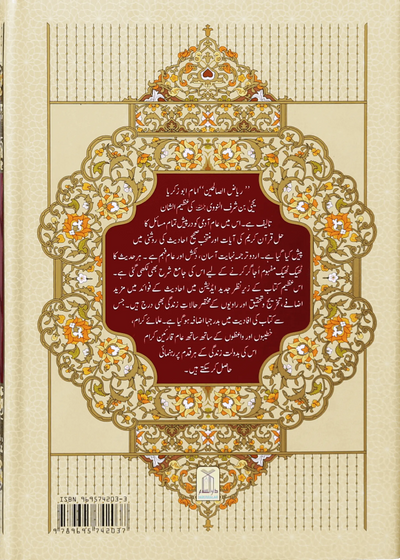 "ریاض الصالحین" امام ابو زکریا
یحییٰ بن شرف النووی کی عظیم الشان
تالیف ہے۔ اس میں عام آدمی کو درپیش تمام مسائل کا
حل قرآن کریم کی آیات اور منتخب صحیح احادیث کی روشنی میں
پیش کیا گیا ہے۔ اردو ترجمہ نہایت آسان، دلکش اور عام فہم ہے۔ ہر حدیث کا
ٹھیک ٹھیک مفہوم اُجاگر کرنے کے لیے اس کی جامع شرح بھی لکھی گئی ہے۔
اس عظیم کتاب کے زیرِ نظر جدید ایڈیشن میں احادیث کے فوائد میں مزید
اضافے، تخریج و تحقیق اور راویوں کے مختصر حالاتِ زندگی بھی درج ہیں۔ جس
سے کتاب کی افادیت میں بدرجہا اضافہ ہو گیا ہے۔ علمائے کرام
خطیبوں اور واعظوں کے ساتھ ساتھ عام قارئین کرام
اس کی بدولت زندگی کے ہر قدم پر رہنمائی
حاصل کر سکتے ہیں۔
ISBN 969574203-3
9 789695 742037
دارالسلام